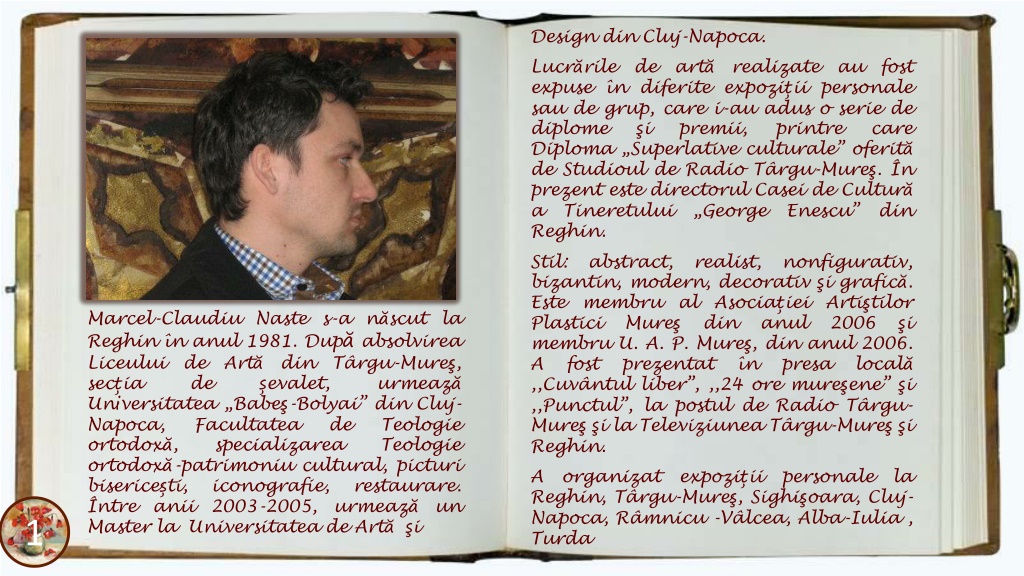 Marcel-Claudiu Naste s-a născut la
Reghin în anul 1981. După absolvirea
Liceului de Artă din Târgu-Mureş,
secţia de şevalet, urmează
Universitatea „Babeş-Bolyai” din Cluj-
Napoca, Facultatea de Teologie
ortodoxă, specializarea Teologie
ortodoxă-patrimoniu cultural, picturi
bisericești, iconografie, restaurare.
Între anii 2003-2005, urmează un
Master la Universitatea de Artă şi
1
Design din Cluj-Napoca.
Lucrările de artă realizate au fost
expuse în diferite expoziţii personale
sau de grup, care i-au adus o serie de
diplome şi premii, printre care
Diploma „Superlative culturale” oferită
de Studioul de Radio Târgu-Mureş. În
prezent este directorul Casei de Cultură
a Tineretului „George Enescu” din
Reghin.
Stil: abstract, realist, nonfigurativ,
bizantin, modern, decorativ şi grafică.
Este membru al Asociaţiei Artiştilor
Plastici Mureş din anul 2006 şi
membru U. A. P. Mureş, din anul 2006.
A fost prezentat în presa locală
,,Cuvântul liber”, ,,24 ore mureşene” şi
,,Punctul”, la postul de Radio Târgu-
Mureş şi la Televiziunea Târgu-Mureş şi
Reghin.
A organizat expoziţii personale la
Reghin, Târgu-Mureş, Sighişoara, Cluj-
Napoca, Râmnicu -Vâlcea, Alba-Iulia ,
Turda